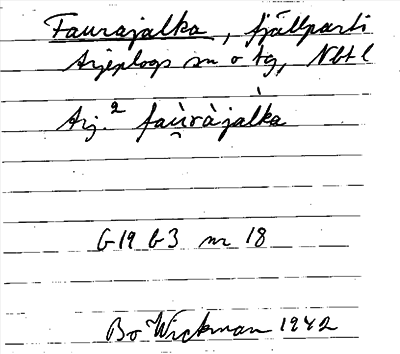 Faurajalka, fjällparti
Arjeplogs sn o tg, Nbt l
Arj.² fau̯ràjàlka
G19 b3 nr 18
Bo Wickman 1942